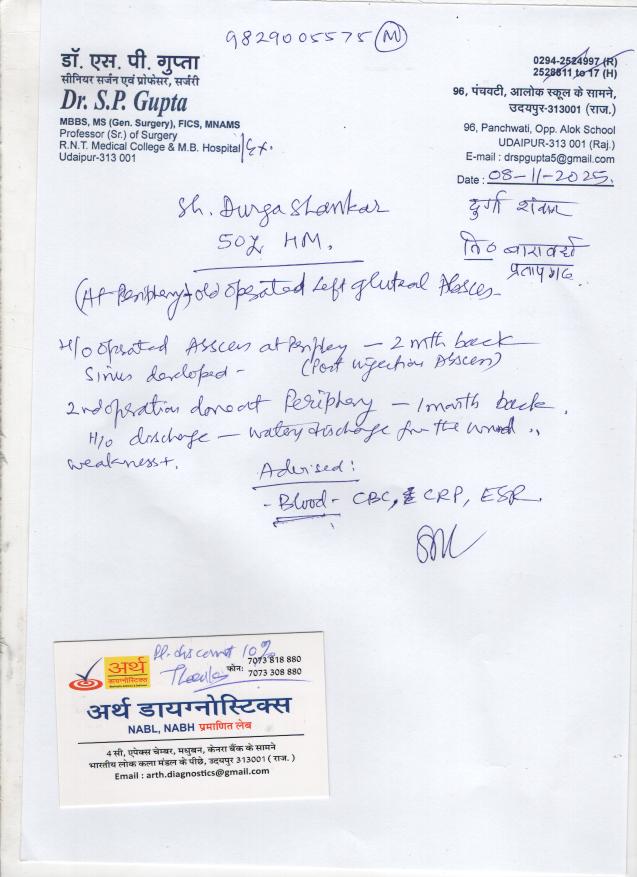 9829005575 (M)
डॉ. एस. पी. गुप्ता
सीनियर सर्जन एवं प्रोफेसर, सर्जरी
Dr. S.P. Gupta
MBBS, MS (Gen. Surgery), FICS, MNAMS
Professor (Sr.) of Surgery
R.N.T. Medical College & M.B. Hospital Ex.
Udaipur-313 001
0294-2524997 (R)
2528811 to 17 (H)
96, पंचवटी, आलोक स्कूल के सामने,
उदयपुर-313001 (राज.)
96, Panchwati, Opp. Alok School
UDAIPUR-313 001 (Raj.)
E-mail : drspgupta5@gmail.com
Date : 08-11-2025.
Sh. Durga Shankar
50y HM.
दुर्गा शंकर
नि०
प्रतापगढ़
(At Periphery) old operated Left gluteal Abscess
H/o operated Abscess at Periphery - 2 mth back
Sinus developed - (Post injection Abscess)
2nd operation done at Periphery - 1 month back.
H/o discharge - watery discharge for the wound
weakness +.
Advised:
- Blood - CBC, CRP, ESR.
Pl. discount 10%
Thanks
अर्थ
डायग्नोस्टिक्स
फोन: 7073 818 880
7073 308 880
अर्थ डायग्नोस्टिक्स
NABL, NABH प्रमाणित लेब
4 सी, एपेक्स चेम्बर, मधुबन, केनरा बैंक के सामने
भारतीय लोक कला मंडल के पीछे, उदयपुर 313001 ( राज. )
Email : arth.diagnostics@gmail.com